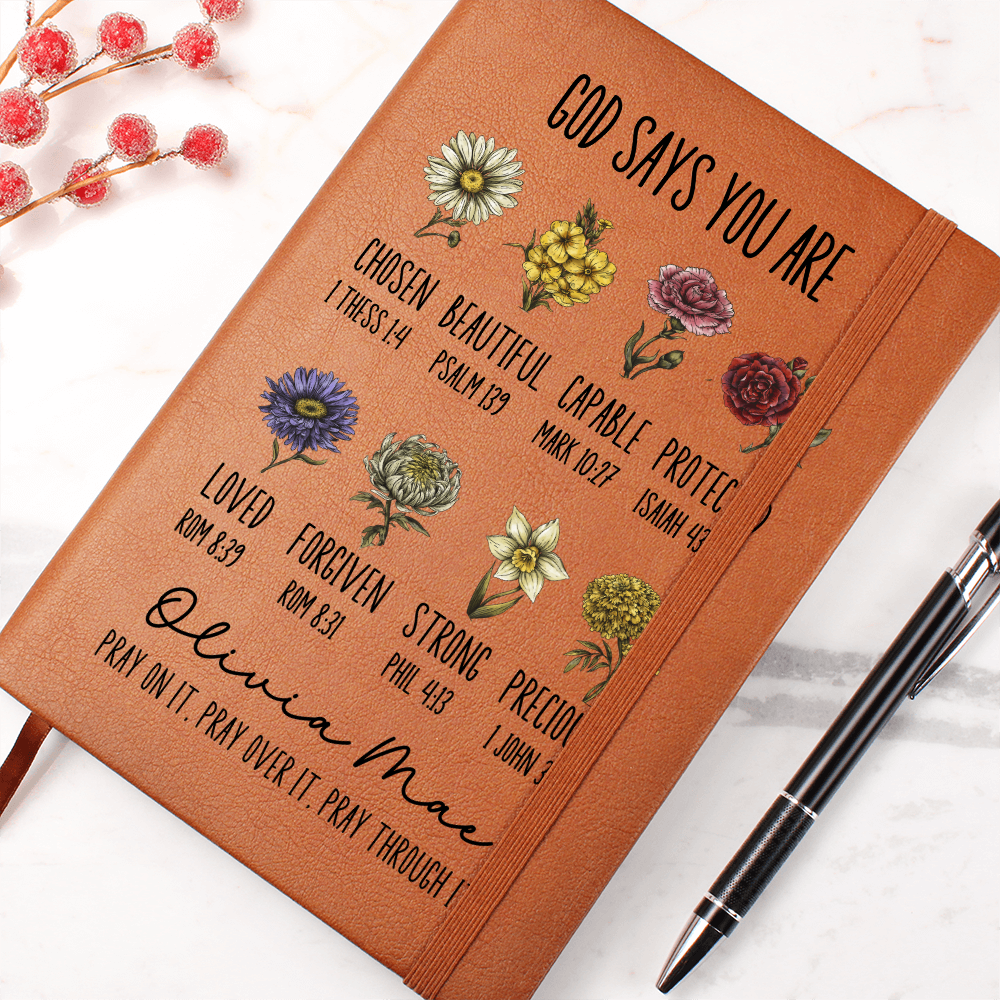 GOD SAYS YOU ARE
CHOSEN BEAUTIFUL CAPABLE PROTEC
1 THESS 1:4 PSALM 139 MARK 10:27 ISAIAH 43
LOVED FORGIVEN STRONG PRECIOU
ROM 8:39 ROM 8:31 PHIL 4:13 1 JOHN 3
Olivia Mae
PRAY ON IT. PRAY OVER IT. PRAY THROUGH I